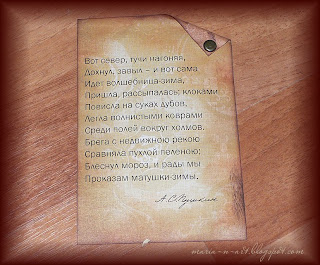 Вот север, тучи нагоняя,
Дохнул, завыл – и вот сама
Идет волшебница-зима,
Пришла, рассыпалась; клоками
Повисла на суках дубов,
Легла волнистыми коврами
Среди полей вокруг холмов.
Брега с недвижною рекою
Сравняла пухлой пеленою;
Блеснул мороз, и рады мы
Проказам матушки-зимы.
А.С.Пушкин
maria-n-art.blogspot.com